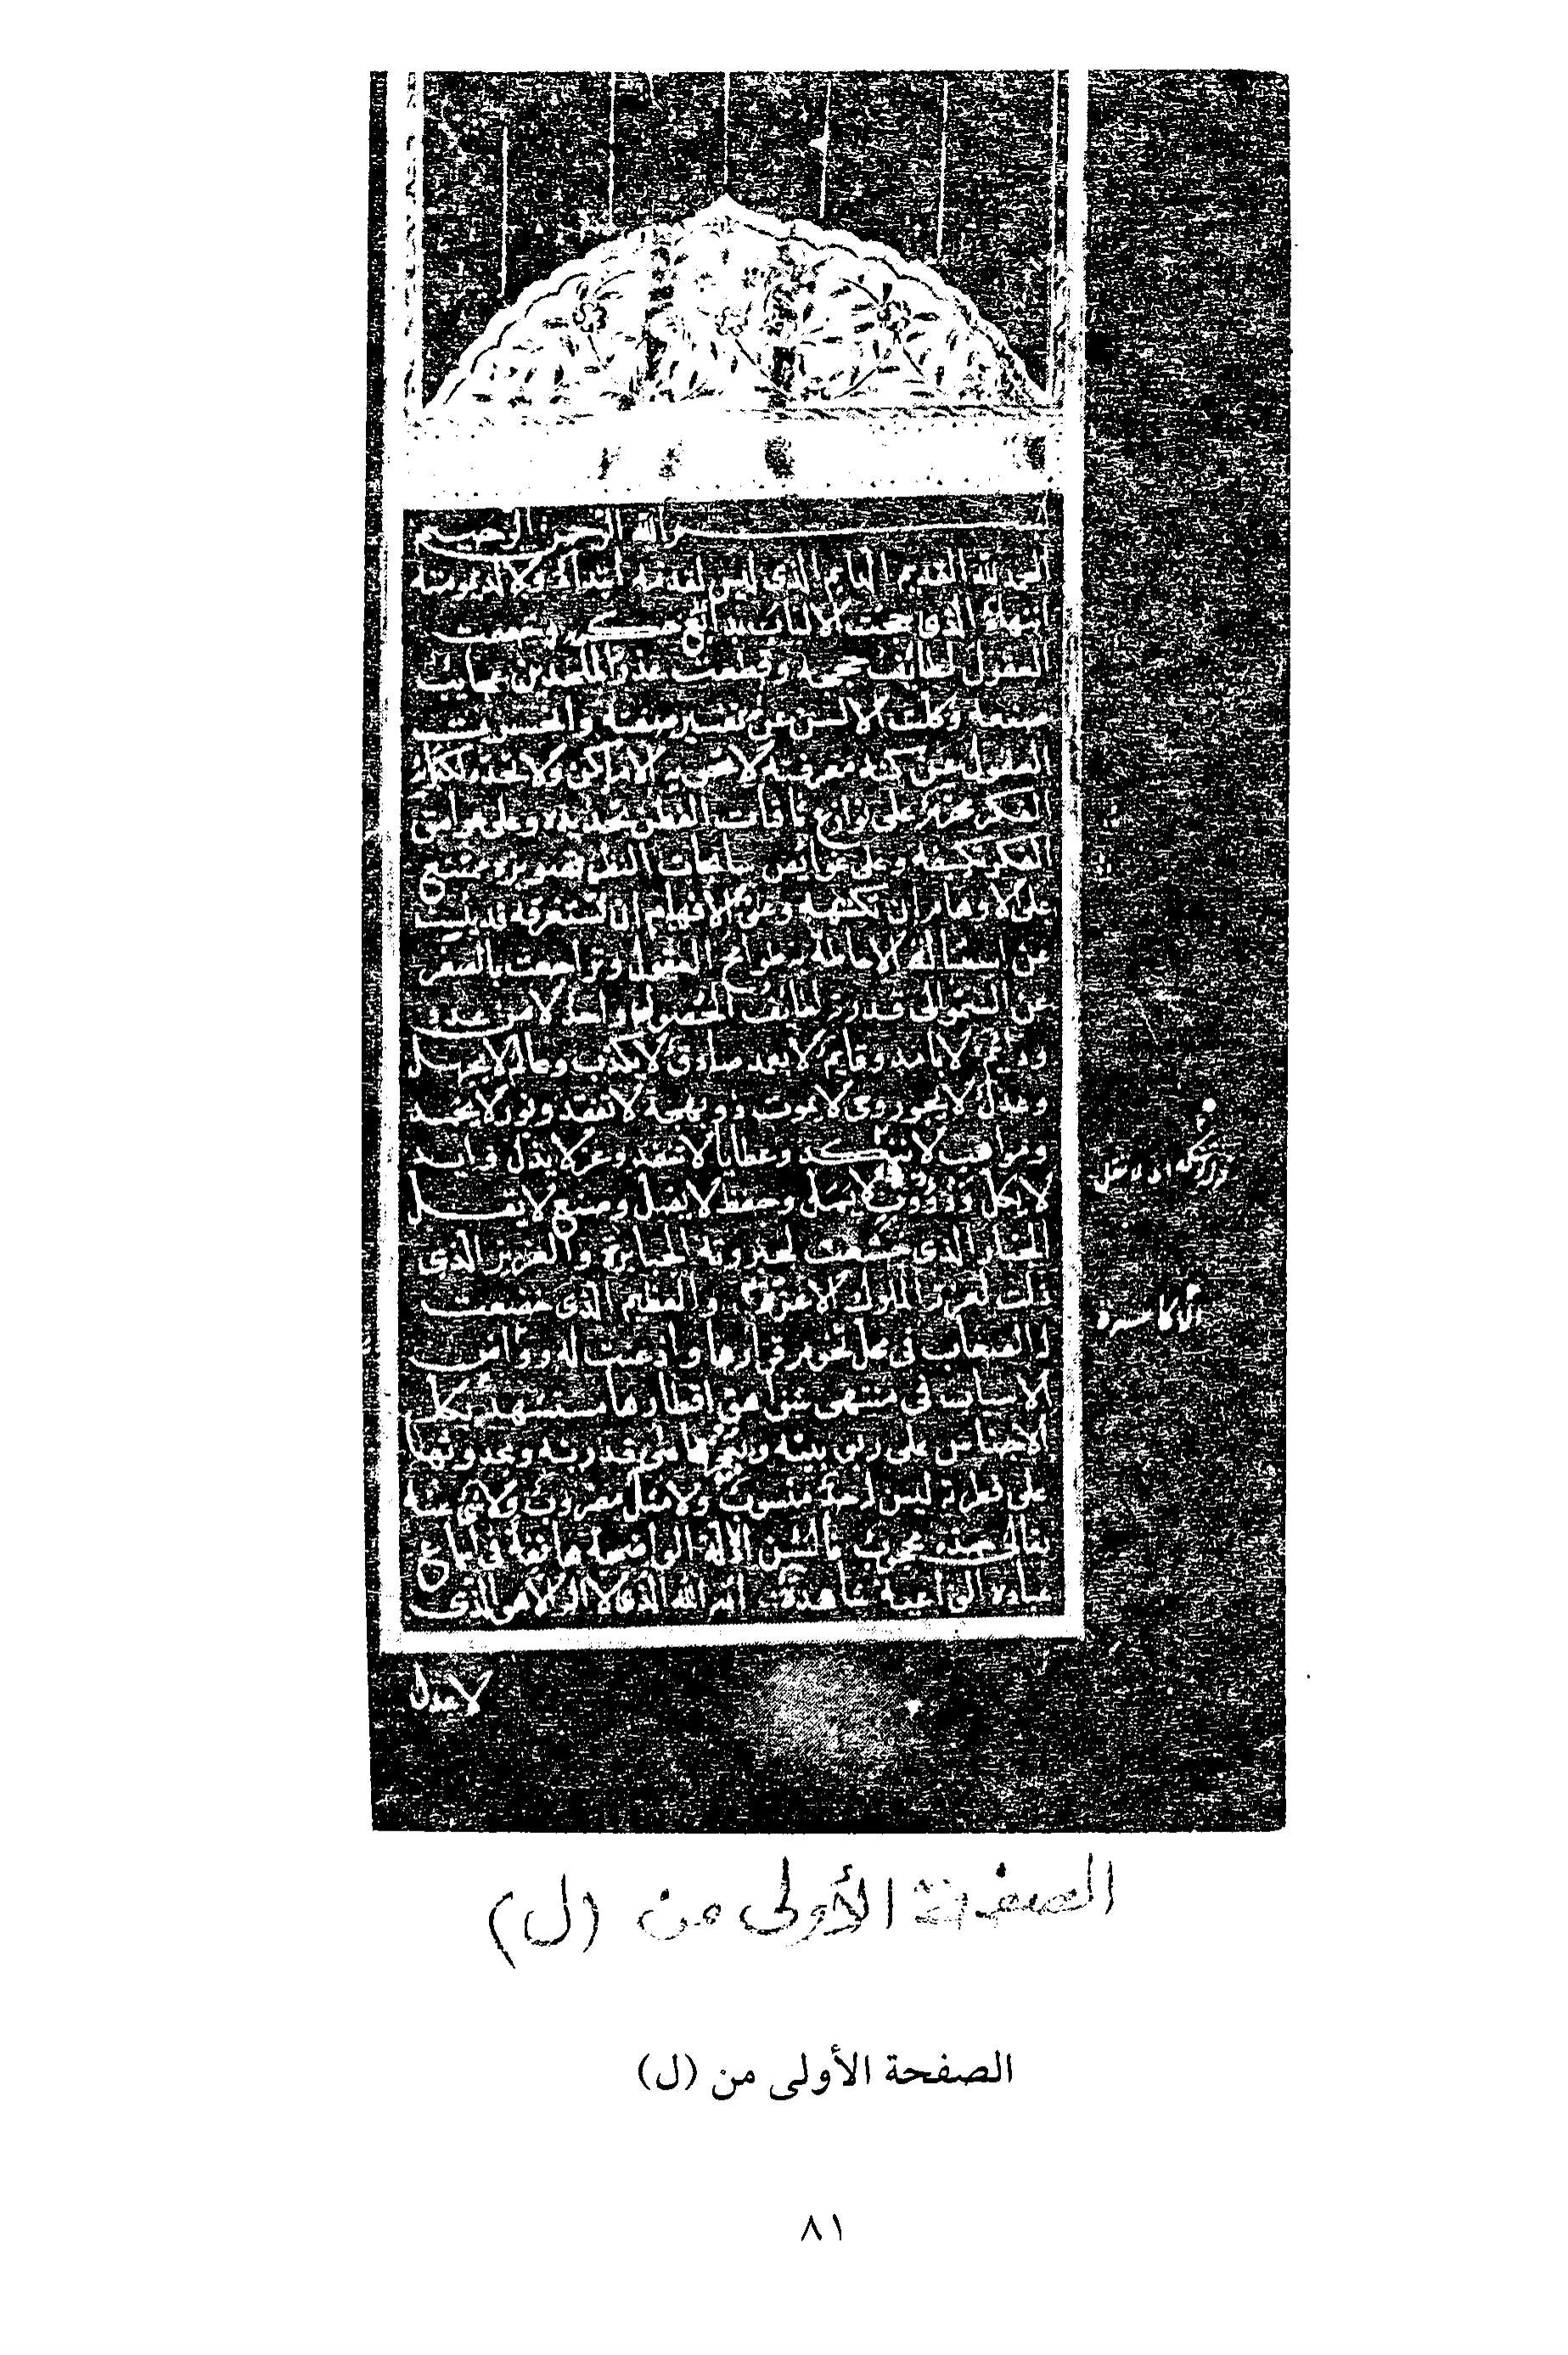 بسم الله الرحمن الرحيم
الحمد لله القديم الدايم الذى ليس لقدمه ابتداء ولا لديموميته
انتهاء الذى حجت الالباب ببدائع حكمه وخصمت
العقول لطائف حججه وقطعت عذر الملحدين عجائب
صنعته وكلت الالسن عن تفسير صفته وانحسرت
العقول عن كنه معرفته لا تحويه الاماكن ولا تحده
الفكر محرم على نوازع ثاقبات الفطن تحديده وعلى
الفكر تكييفه وعلى غوائص سابحات النظر تصويره ممتنع
على الاوهام ان تكتنهه وعلى الافهام ان تستعرفه قد يئست
عن الاحاطة به طوامح العقول وتراجعت بالصغر
عن السمو الى قدرته لطائف الخصوم واحد لا من عدد
ودائم لا بامد وقائم لا بعمد صادق لا يكذب وعالم لا يجهل
وعدل لا يجور وحى لا يموت ذو بهجة لا تفقد ونور لا يخمد
ومواهب لا تنكد وعطايا لا تنفد وعز لا يذل
لا يكل وحفظ لا يضل وصنع لا يفل
الجبار الذى خشعت لجبروته الجبابرة والعزيز الذى
ذلت لعزته الملوك الاعزة والعظيم الذى خضعت
له الصعاب فى محل تخوم قرارها واذعنت له رواصن
الاسباب فى منتهى شواهق اقطارها مستشهد بكل
الاجناس على ربوبيته وبعجزها على قدرته وبحدوثها
على فطرة ليس له حد منسوب ولا مثل مضروب ولا شىء عنه
تعالى محجوب
عباده شاهدة الله الذى لا اله الا هو الذى
الاكاسرة
لا عدل
الصفحة الأولى من (ل)
الصفحة الأولى من (ل)
٨١